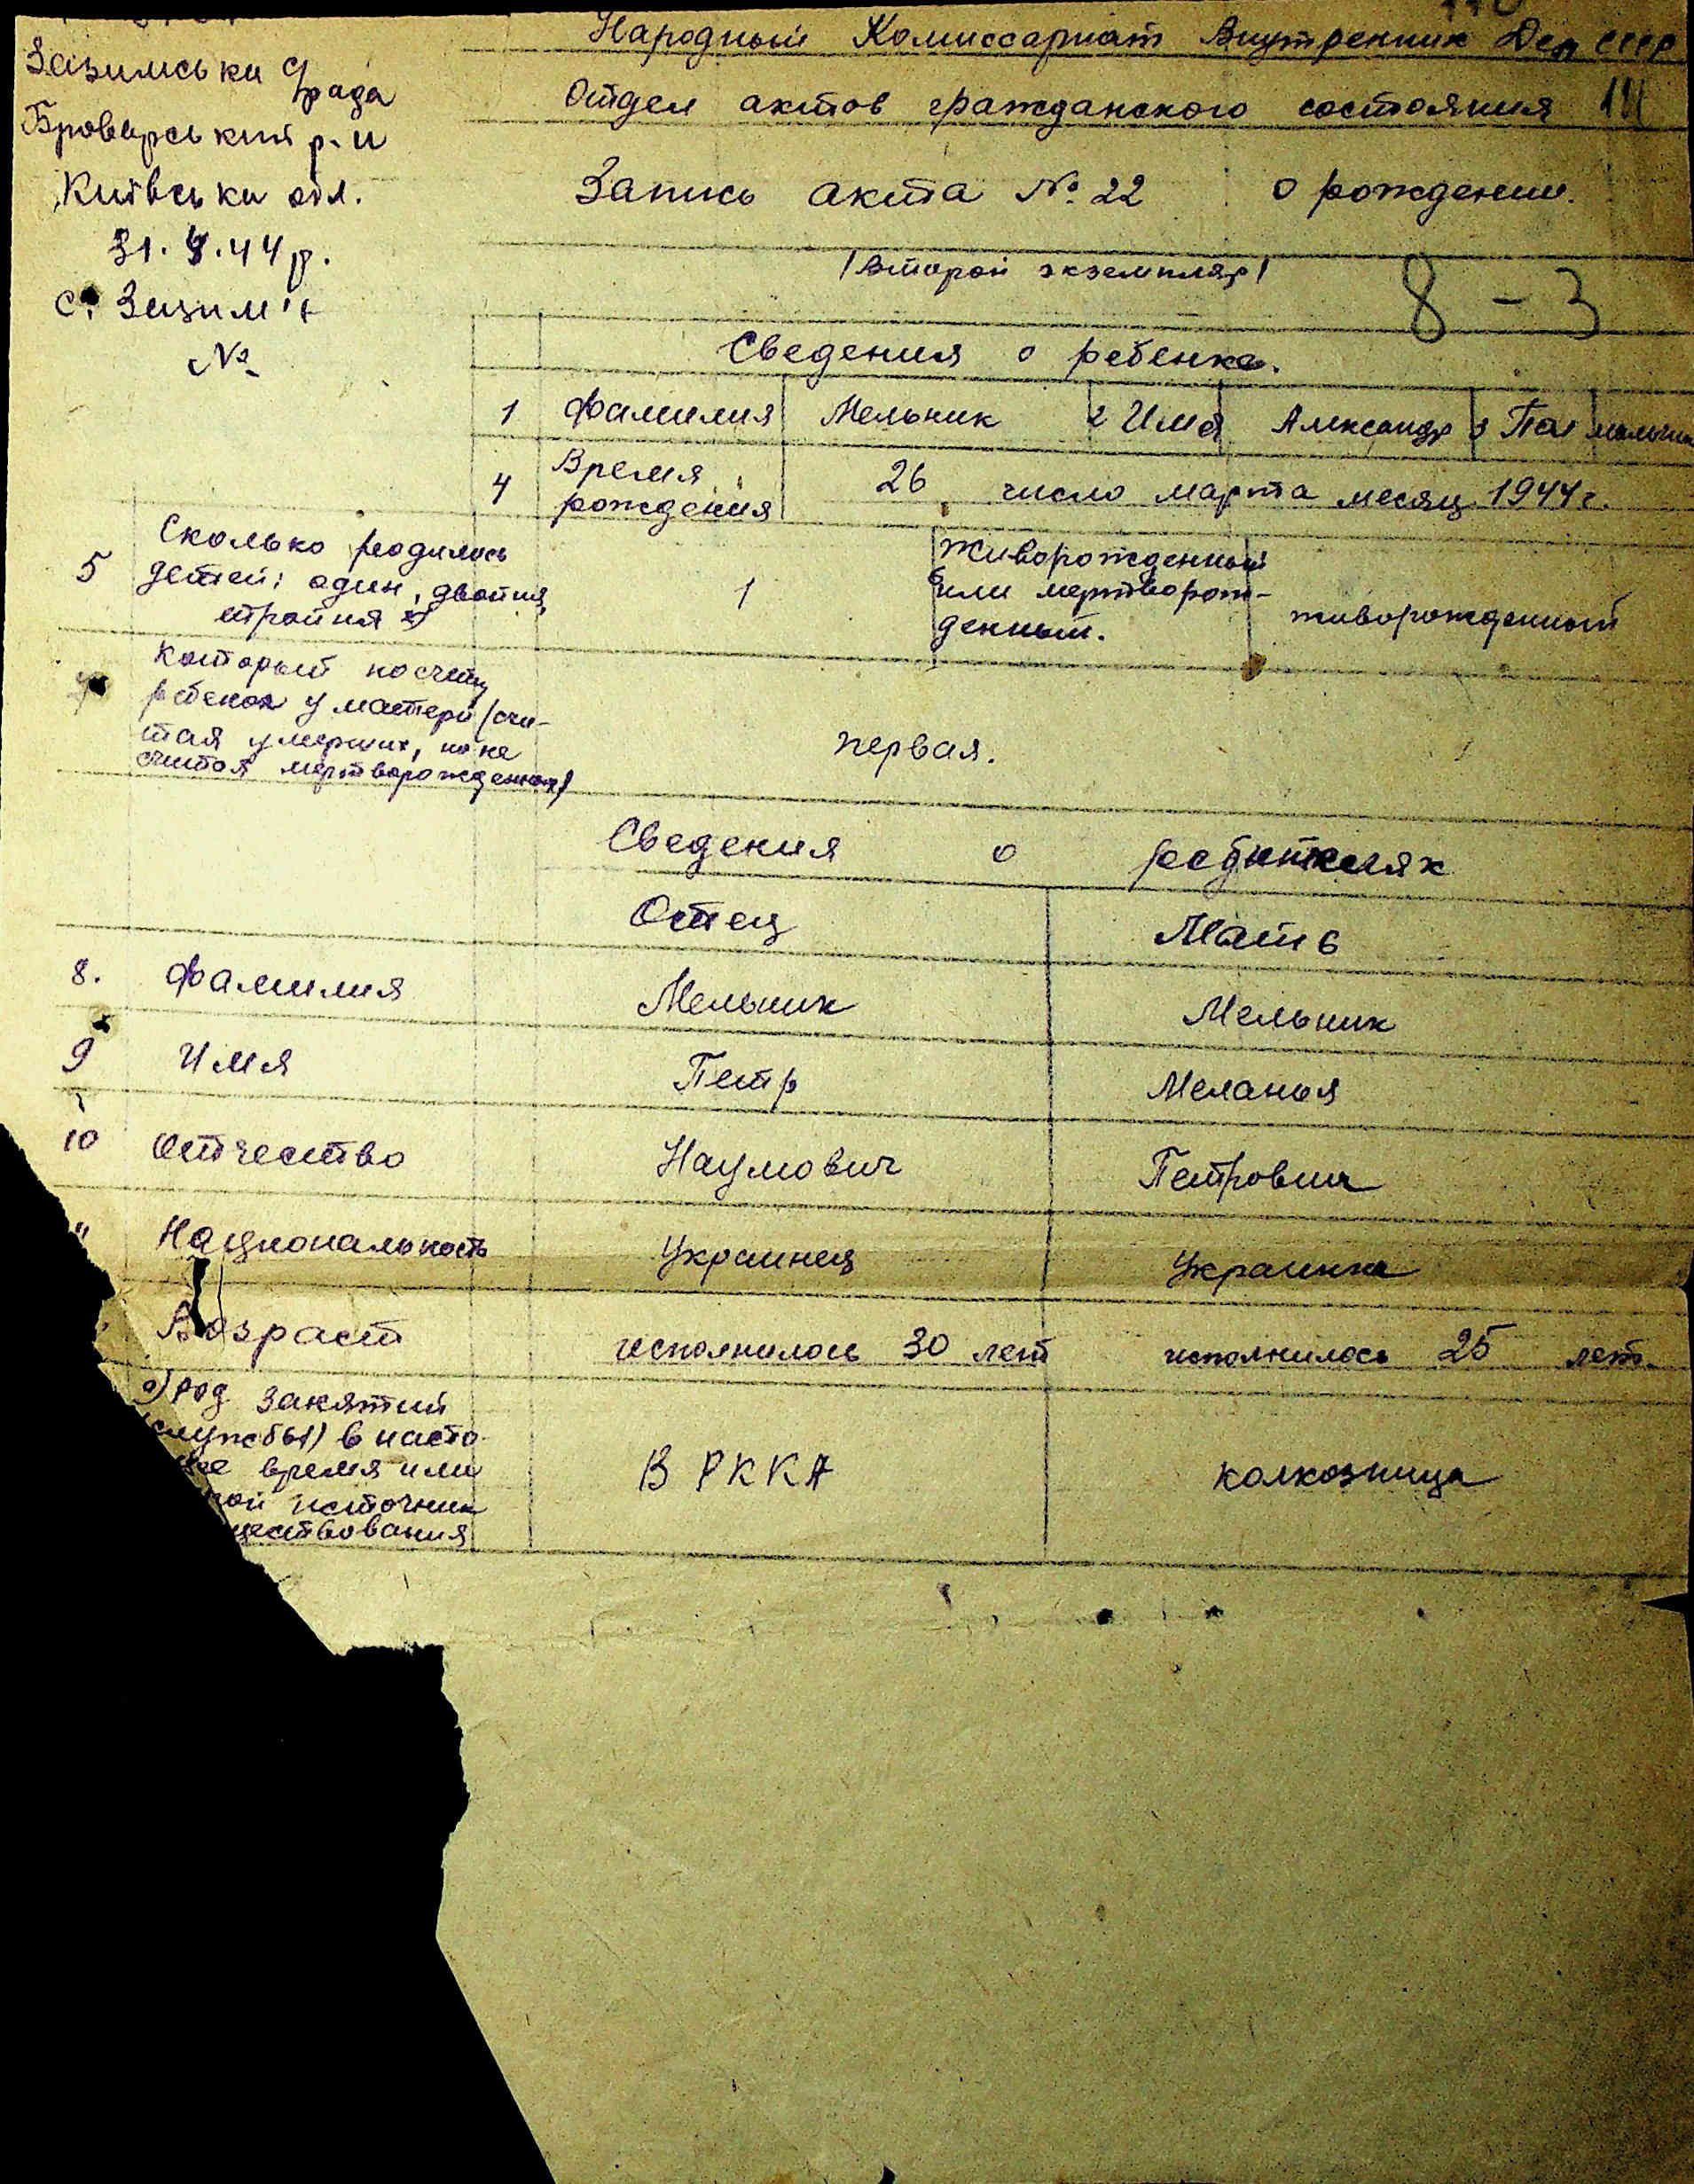 Народный Комиссариат Внутренних Дел СССР
Отдел актов гражданского состояния 111
Запись акта № 22 о рождении.
/Второй экземпляр/
8-3
Зазимська с/рада
Броварський р-н
Київська обл.
31.
44 р.
с. Зазим'є
№
Сведения о ребенке.
1 Фамилия Мельник 2 Имя Александр 3 Пол мальчик
4 Время рождения 26 число марта месяц 1944 г.
5 Сколько родилось
детей: один, двойня,
тройня
1
6 Живорожденный
или мертворож-
денный.
живорожденный
Который по счету
ребенок у матери /счи-
тая умерших, но не
считая мертворожденных/
первая.
Сведения о родителях
Отец Мать
8. Фамилия Мельник Мельник
9 Имя Петр Меланья
10 Отчество Наумович Петровна
11 Национальность Украинец Украинка
Возраст исполнилось 30 лет исполнилось 25 лет.
а) род занятий
(службы) в насто-
щее время или
ной источник
ществования
В РККА колхозница